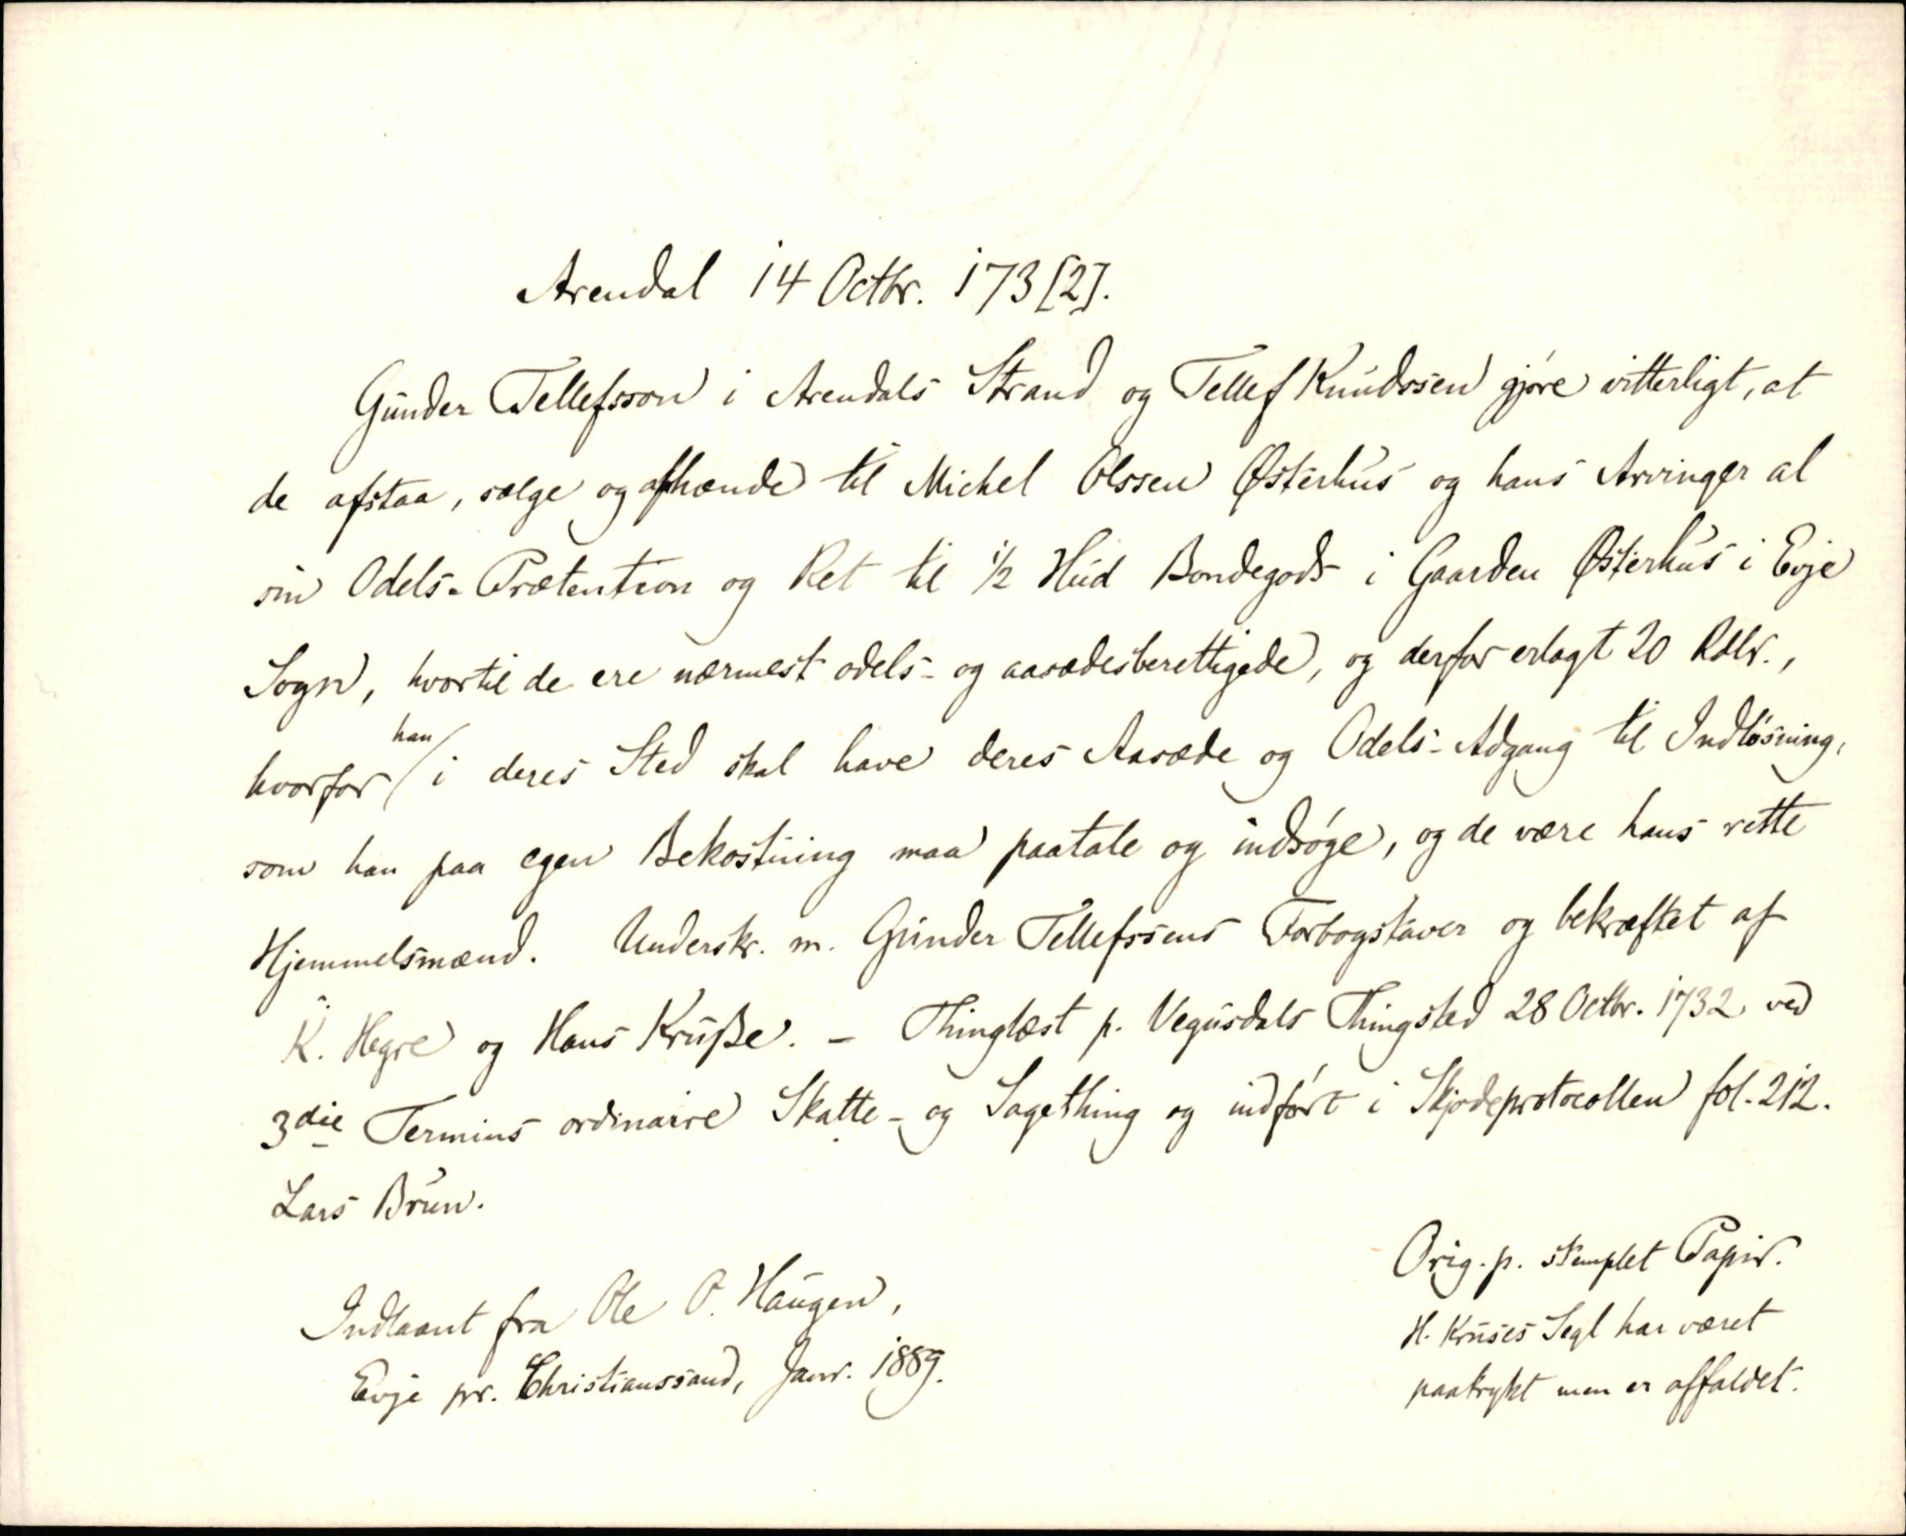 Arendal 14 Octbr. 173[2].
Gunder Tellefsson i Arendals Strand og Tellef Knudssen gjøre vitterligt, at
de afstaa, sælge og afhænde til Michel Olssen Østerhus og hans Arvinger al
sin Odels-Prætention og Ret til 1/2 Hud Bondegods i Gaarden Østerhus i Evje
Sogn, hvortil de ere nærmest odels- og aasædesberettigede, og derfor erlagt 20 Rdlr.,
hvorfor han i deres Sted skal have deres Aasæde og Odels-Adgang til Indløsning,
som han paa egen Bekostning maa paatale og indsøge, og de være hans rette
Hjemmelsmænd. Underskr. m. Gunder Tellefssens Forbogstaver og bekræftet af
K. Hegre og Hans Kruse. - Thinglæst p. Vegusdals Thingsted 28 Octbr. 1732 ved
3die Termins ordinaire Skatte- og Sagething og indført i Skjødeprotocollen fol. 212.
Lars Brun.
Indlaant fra Ole O. Haugen,
Evje pr. Christianssand, Janr. 1889.
Orig. p. stemplet Papir.
H. Kruses Segl har været
paatrykt men er affaldet.